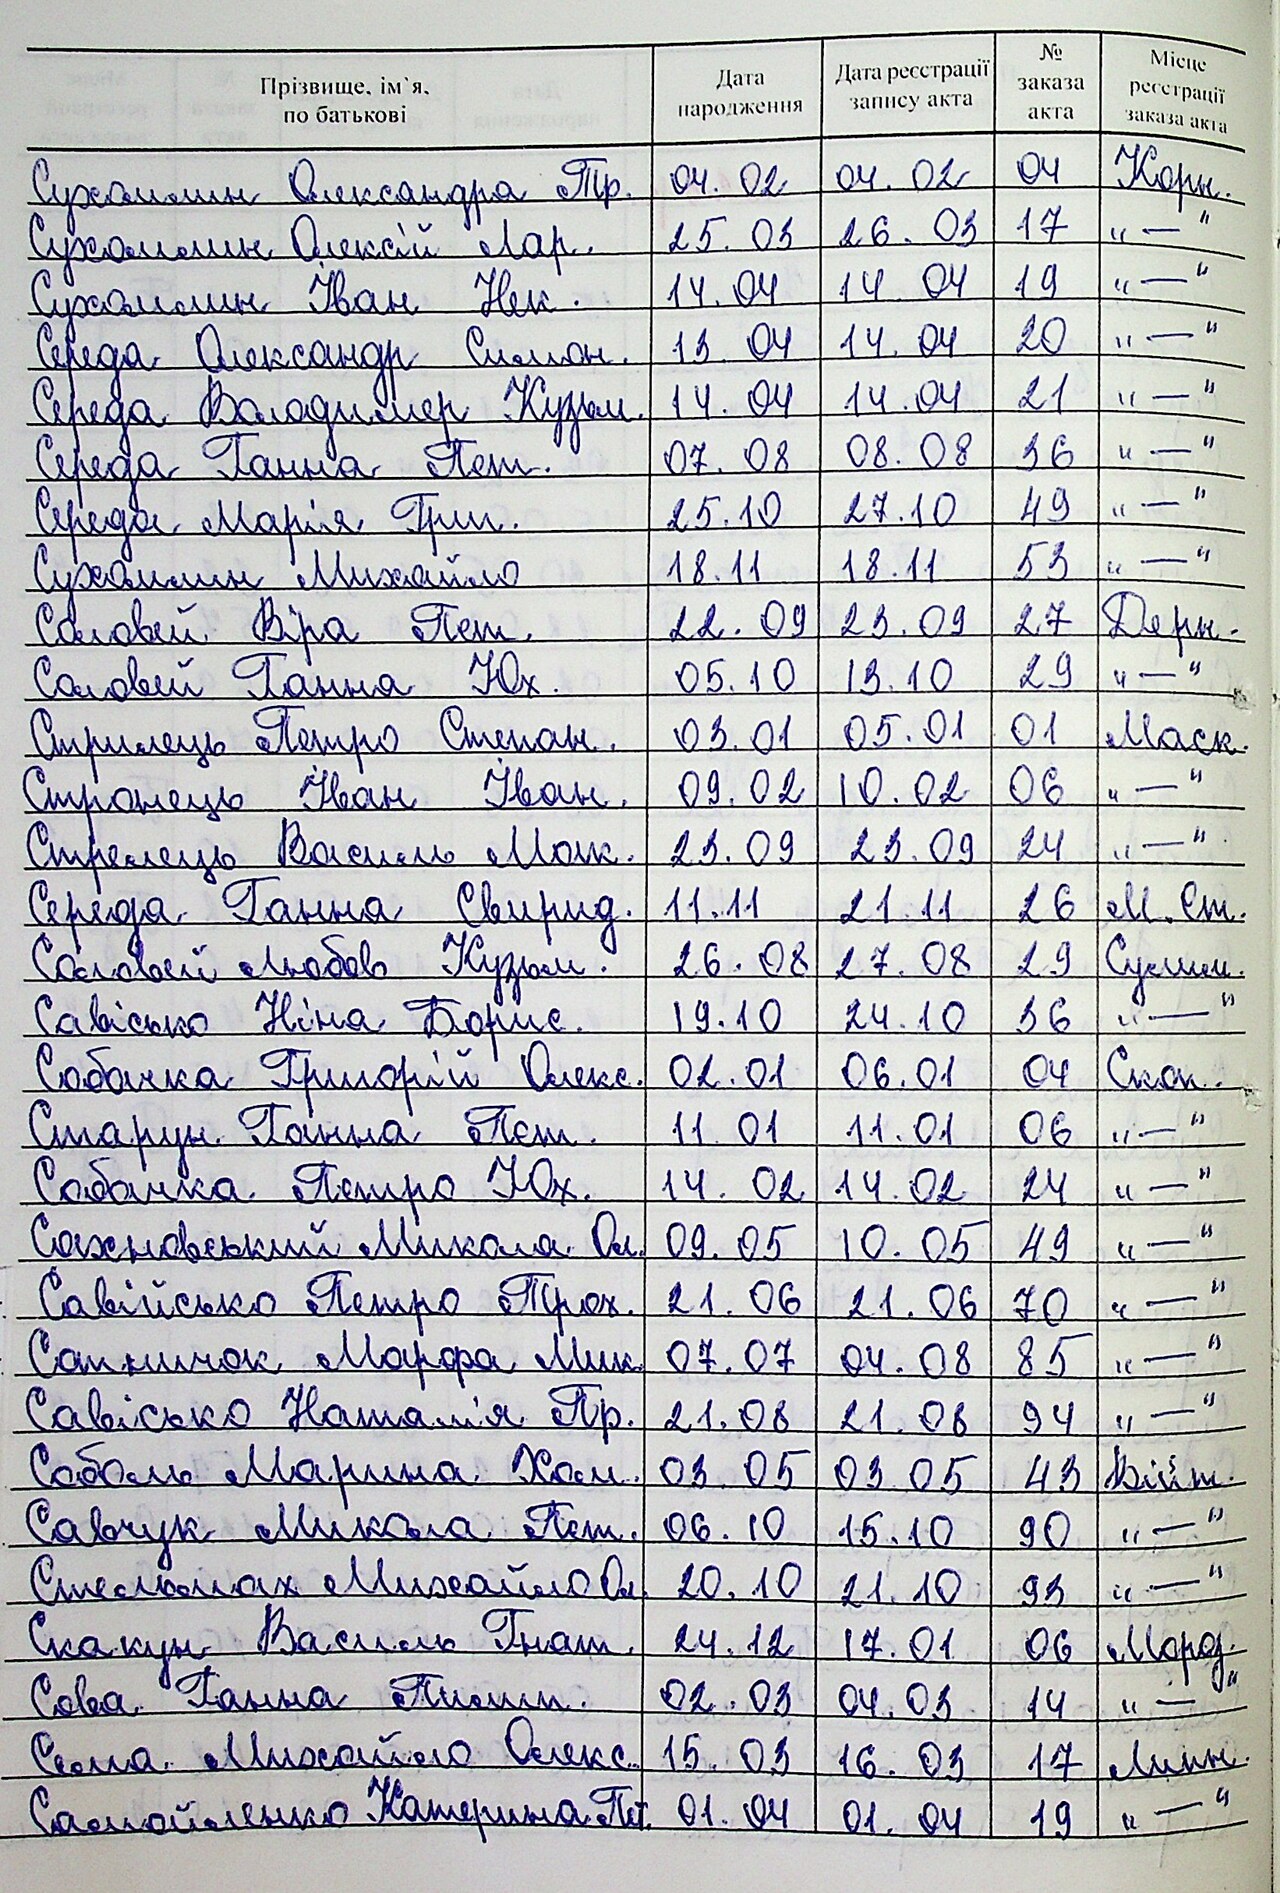 Прізвище, ім`я, по батькові Дата народження Дата реєстрації запису акта № заказа акта Місце реєстрації заказа акта
Сухомлин Олександра Пр. 04.02 04.02 04 Корн.
Сухомлин Олексій Лар. 25.03 26.03 17 „—"
Сухомлин Іван Нек. 14.04 14.04 19 „—"
Середа Олександр Симон. 13.04 14.04 20 „—"
Середа Володимер Кузьм. 14.04 14.04 21 „—"
Середа Ганна Пет. 07.08 08.08 36 „—"
Середа Марія Григ. 25.10 27.10 49 „—"
Сухомлин Михайло 18.11 18.11 53 „—"
Соловей Віра Пет. 22.09 23.09 27 Дерн.
Соловей Ганна Юх. 05.10 13.10 29 „—"
Стрилець Петро Степан. 03.01 05.01 01 Маск.
Странець Іван Іван. 09.02 10.02 06 „—"
Стрелець Василь Мак. 23.09 23.09 24 „—"
Середа Ганна Свирид. 11.11 21.11 26 М.Ст.
Соловей Любов Кузьм. 26.08 27.08 29 Сулим.
Савісько Ніна Борис. 19.10 24.10 36 „—"
Собачка Григорій Олекс. 02.01 06.01 04 Скоп.
Старун Ганна Пет. 11.01 11.01 06 „—"
Собачка Петро Юх. 14.02 14.02 24 „—"
Сахновський Микола Ол. 09.05 10.05 49 „—"
Савійсько Петро Прох. 21.06 21.06 70 „—"
Сотничок Марфа Мик. 07.07 04.08 85 „—"
Савісько Наталія Пр. 21.08 21.08 94 „—"
Соболь Марина Хом. 03.05 03.05 43 Війт.
Савчук Микола Пет. 06.10 15.10 90 „—"
Стельмах Михайло Ол. 20.10 21.10 93 „—"
Скакун Василь Гнат. 24.12 17.01 06 Мороз.
Сова Ганна Пилип. 02.03 04.03 14 „—"
Михайло Олекс. 15.03 16.03 17 Липн.
Самойленко Катерина Пет. 01.04 01.04 19 „—"